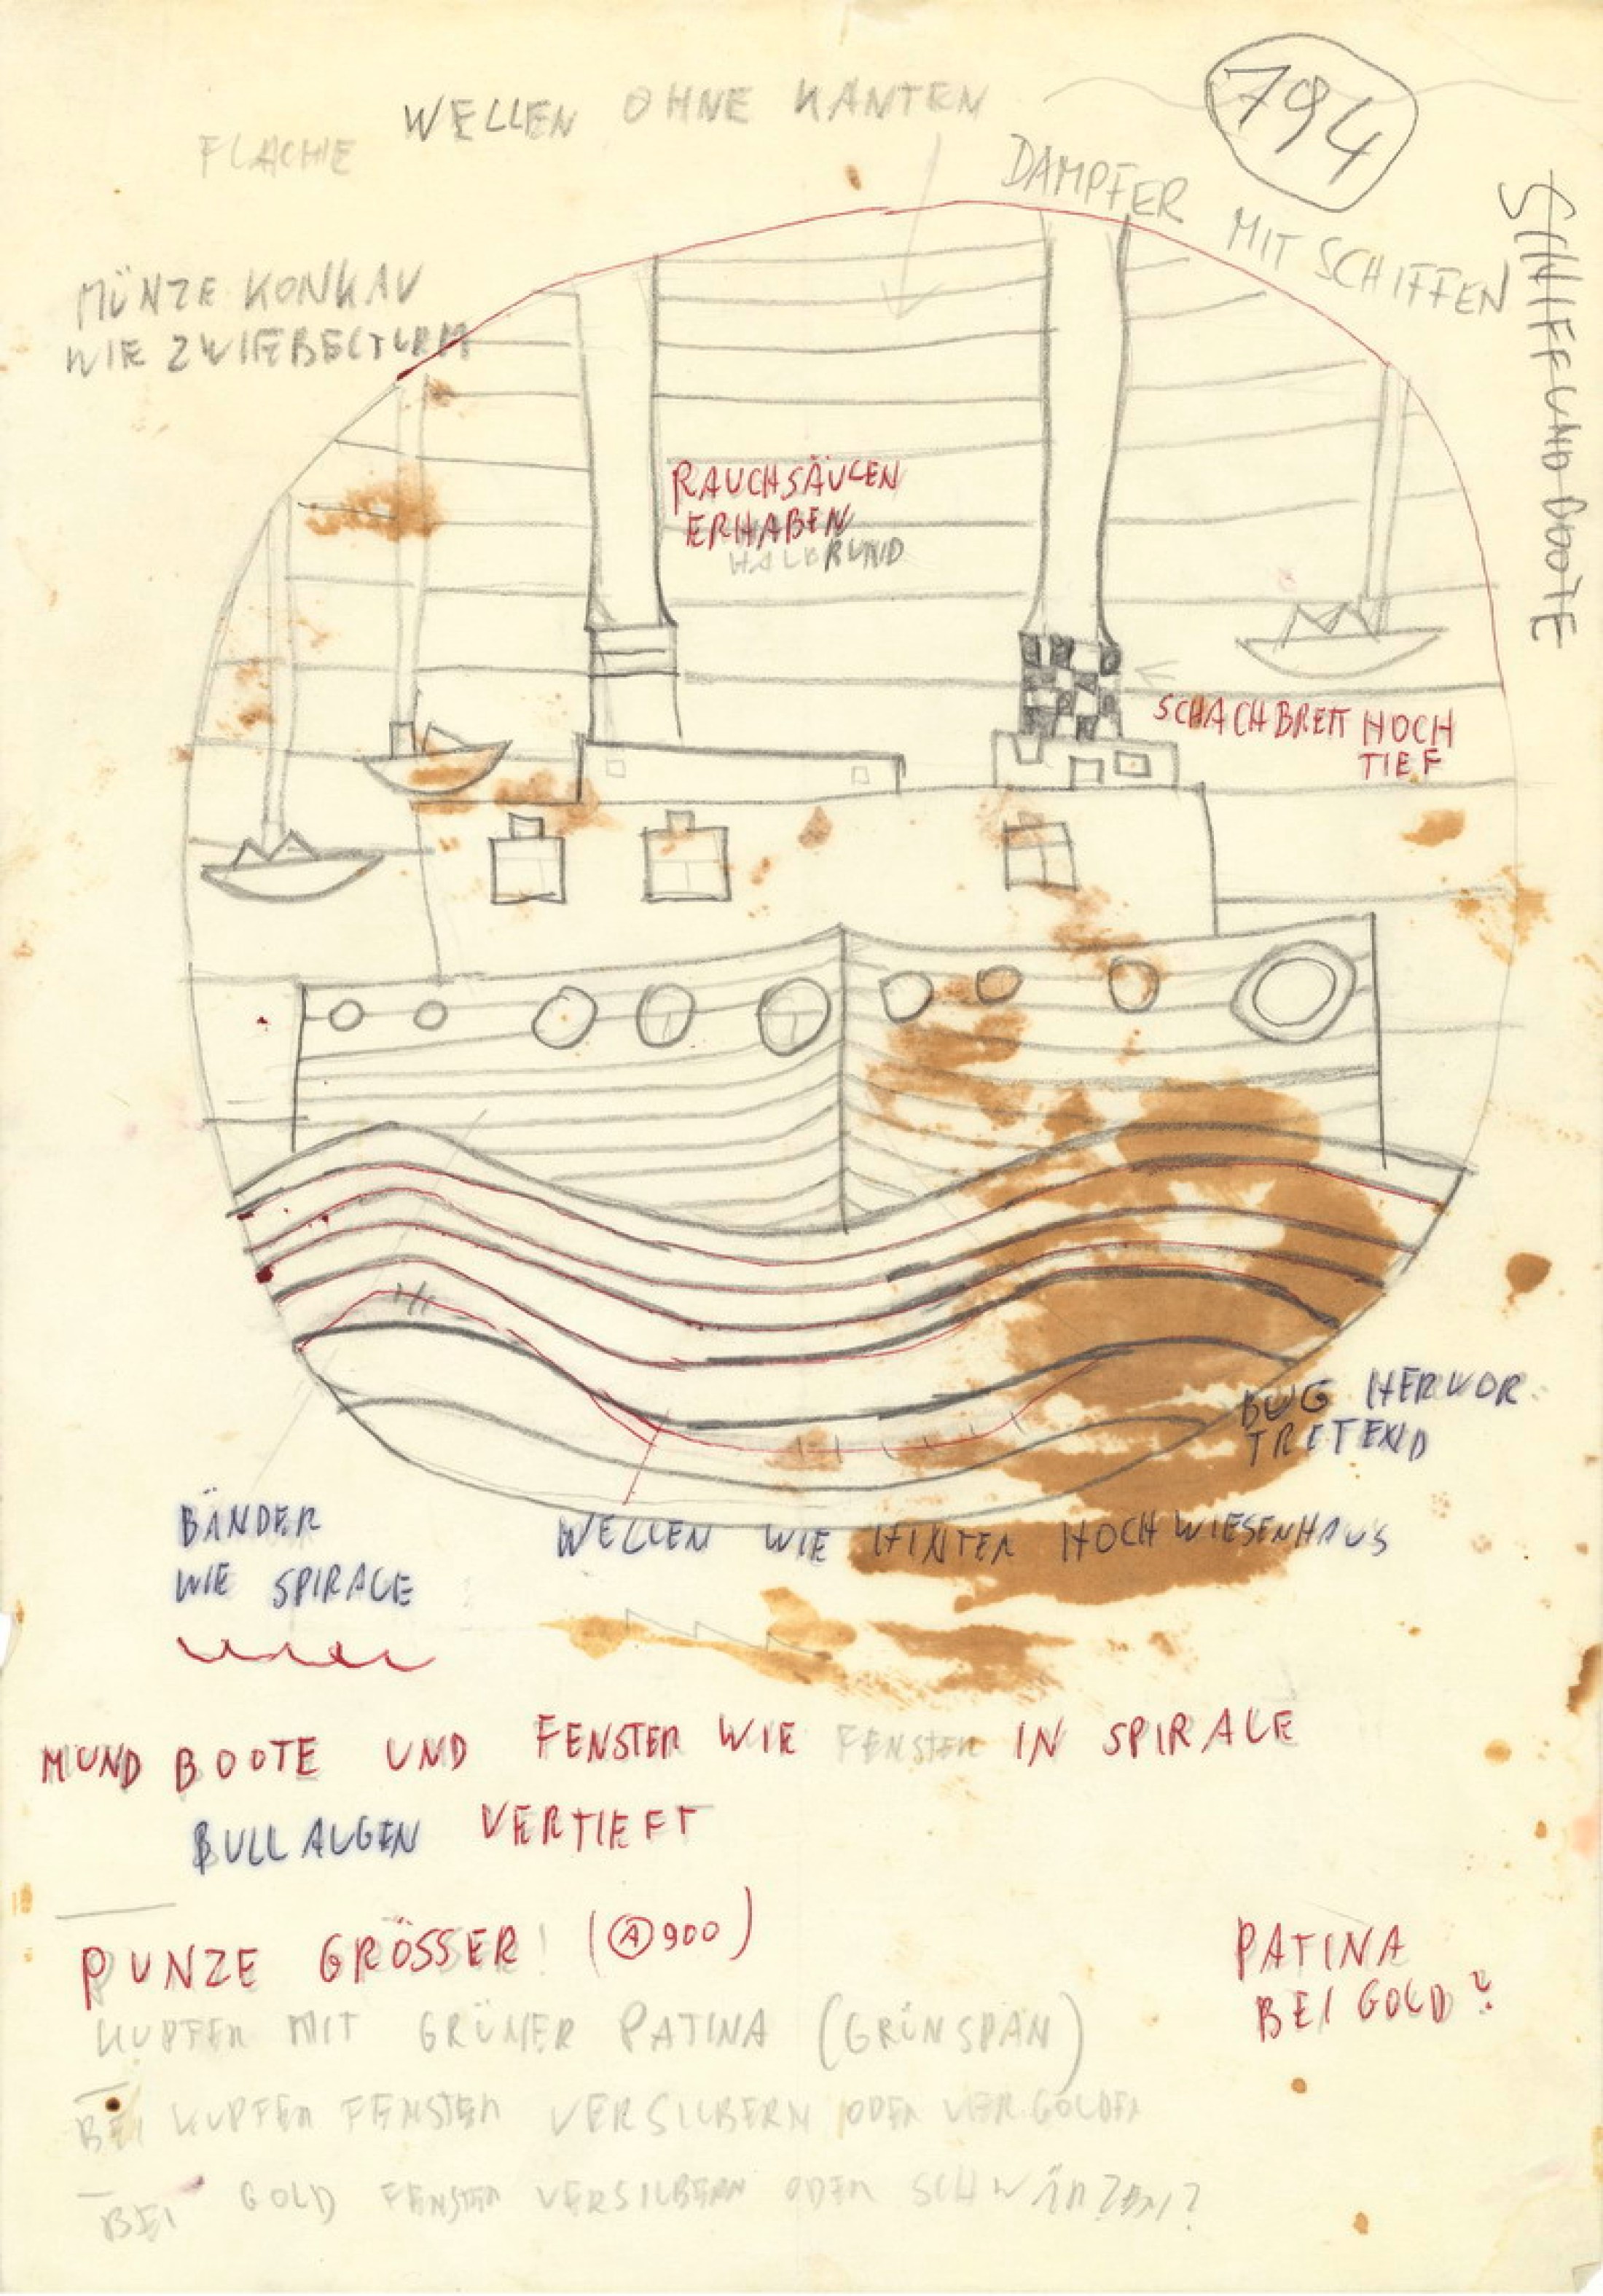 794
WELLEN OHNE KANTEN
FLACHE
DAMPFER
MIT SCHIFFEN
SCHIFF UND BOOTE
MÜNZE KONKAV
WIE ZWIEBELTURM
RAUCHSÄULEN
ERHABEN
HALBRUND
SCHACHBRETT HOCH
TIEF
BUG HERVOR
TRETEND
BÄNDER
WIE SPIRALE
WELLEN WIE HINTER HOCHWIESENHAUS
MUND BOOTE UND FENSTER WIE FENSTER IN SPIRALE
BULLAUGEN VERTIEFT
PUNZE GRÖSSER! (Ⓐ900)
PATINA
BEI GOLD?
KUPFER MIT GRÜNER PATINA (GRÜNSPAN)
BEI KUPFER FENSTER VERSILBERN ODER VERGOLDEN
BEI GOLD FENSTER VERSILBERN ODER SCHWÄRZEN?